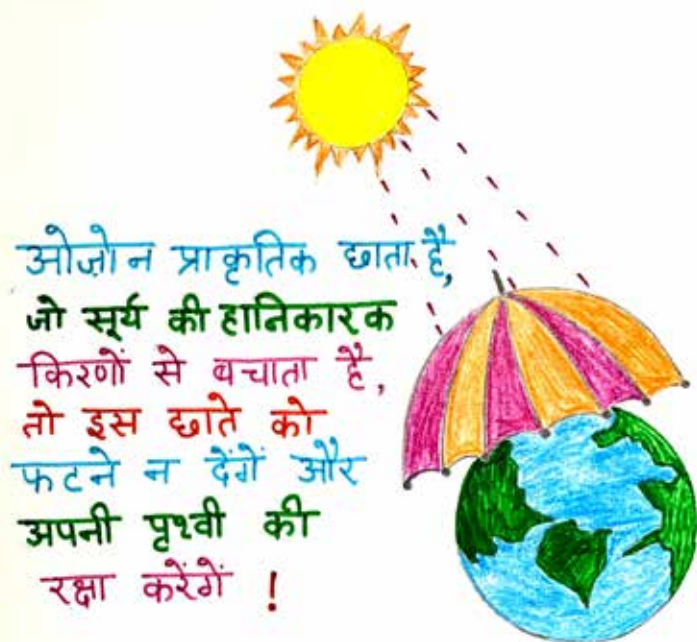 ओज़ोन प्राकृतिक छाता है,
जो सूर्य की हानिकारक
किरणों से बचाता है,
तो इस छाते को
फटने न देंगें और
अपनी पृथ्वी की
रक्षा करेंगें !